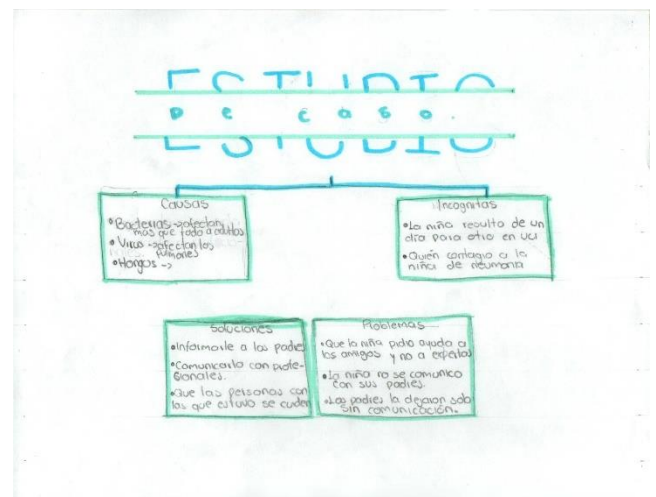 ESTUDIO
De caso.
Causas
•Bacterias -> afectan
más que todo a adultos
•Virus -> afectan los
pulmones
•Hongos ->
Incognitas
•La niña resulto de un
dia para otro en uci
•Quién contagio a la
niña de neumonia
Soluciones
•Informarle a los padres
•Comunicarla con profe-
sionales.
•Que las personas con
las que estuvo se cuiden
Problemas
•Que la niña pidio ayuda a
los amigos y no a expertos
•La niña no se comunico
con sus padres.
•Los padres la dejaron sola
sin comunicación.